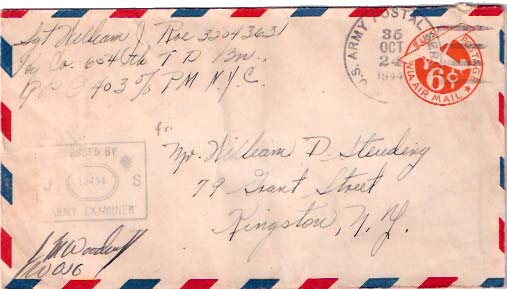 Sgt William J. Roe 32043631
Co. 654th T D Bn.,
A P O 403 % PM N.Y.C.
U.S. ARMY POSTAL SERVICE
35
OCT
24
1944
U.S. POSTAGE
6¢
VIA AIR MAIL
Mr. William D
79 Grant Street
Kingston, N.Y.
PASSED BY
J S
ARMY EXAMINER